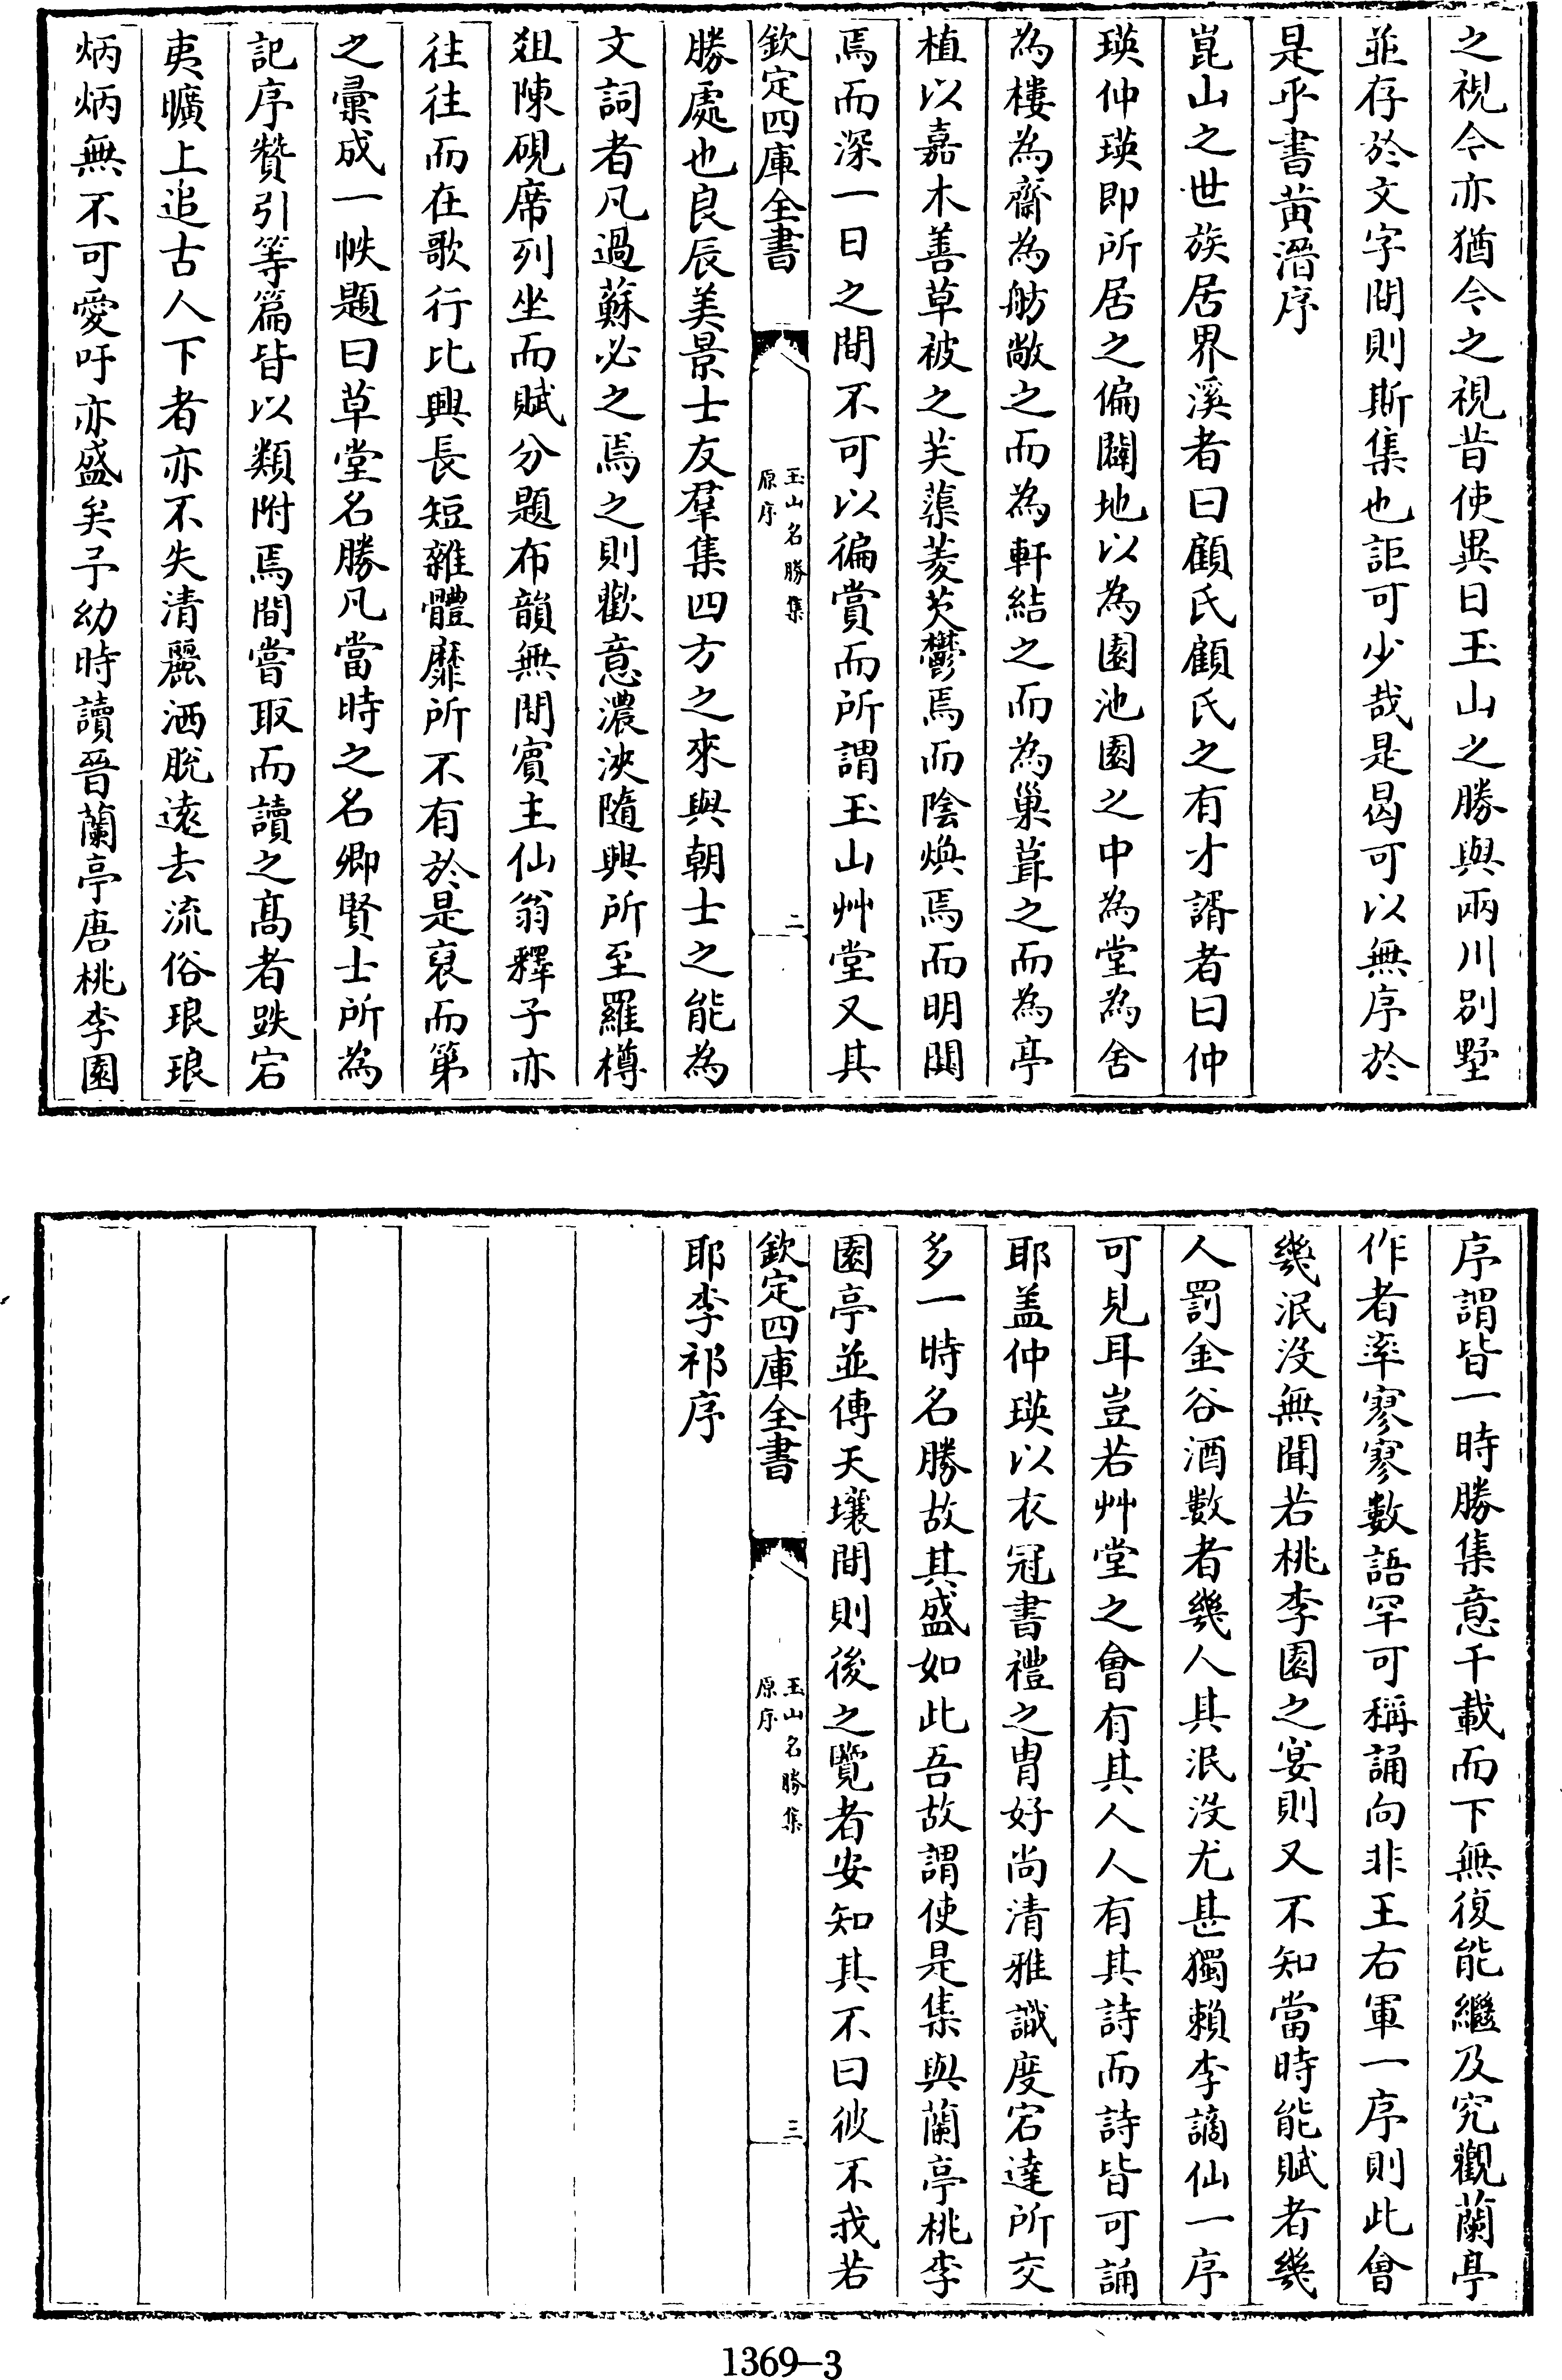 之視今亦猶今之視昔使異日玉山之勝與兩川別墅
並存於文字間則斯集也詎可少哉是曷可以無序於
是乎書黄溍序
崑山之世族居界溪者曰顧氏顧氏之有才諝者曰仲
瑛仲瑛即所居之偏闢地以為園池園之中為堂為舍
為樓為齋為舫敞之而為軒結之而為巢葺之而為亭
植以嘉木善草被之芙蕖菱芡鬱焉而陰煥焉而明闃
焉而深一日之間不可以徧賞而所謂玉山艸堂又其
欽定四庫全書
玉山名勝集
原序
二
勝處也良辰美景士友羣集四方之來與朝士之能為
文詞者凡過蘇必之焉之則歡意濃浹隨興所至羅樽
爼陳硯席列坐而賦分題布韻無間賓主仙翁釋子亦
往往而在歌行比興長短雜體靡所不有於是裒而第
之彙成一帙題曰草堂名勝凡當時之名卿賢士所為
記序贊引等篇皆以類附焉間嘗取而讀之髙者跌宕
夷曠上追古人下者亦不失清麗洒脫逺去流俗琅琅
炳炳無不可愛吁亦盛矣予幼時讀晉蘭亭唐桃李園
序謂皆一時勝集意千載而下無復能繼及究觀蘭亭
作者率寥寥數語罕可稱誦向非王右軍一序則此會
幾泯沒無聞若桃李園之宴則又不知當時能賦者幾
人罰金谷酒數者幾人其泯沒尤甚獨賴李謫仙一序
可見耳豈若艸堂之會有其人人有其詩而詩皆可誦
耶盖仲瑛以衣冠書禮之胄好尚清雅識度宕達所交
多一時名勝故其盛如此吾故謂使是集與蘭亭桃李
園亭並傳天壤間則後之覽者安知其不曰彼不我若
欽定四庫全書
玉山名勝集
原序
三
耶李祁序
1369-3